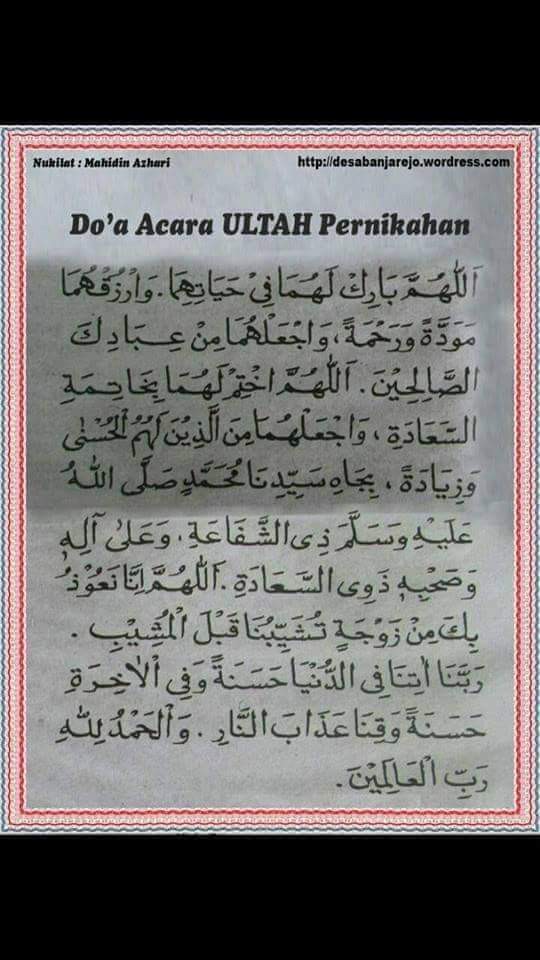 Nukilat : Mahidin Azhari
http://desabanjarejo.wordress.com
Do'a Acara ULTAH Pernikahan
اَللّٰهُمَّ بَارِكْ لَهُمَا فِيْ حَيَاتِهِمَا. وَارْزُقْهُمَا
مَوَدَّةً وَرَحْمَةً، وَاجْعَلْهُمَا مِنْ عِبَادِكَ
الصَّالِحِيْنَ. اَللّٰهُمَّ اخْتِمْ لَهُمَا بِخَاتِمَةِ
السَّعَادَةِ، وَاجْعَلْهُمَا مِنَ الَّذِيْنَ لَهُمُ الْحُسْنٰى
وَزِيَادَةً، بِجَاهِ سَيِّدِنَا مُحَمَّدٍ صَلَّى اللّٰهُ
عَلَيْهِ وَسَلَّمَ ذِى الشَّفَاعَةِ، وَعَلٰى آلِهٖ
وَصَحْبِهٖ ذَوِى السَّعَادَةِ. اَللّٰهُمَّ اِنَّا نَعُوْذُ
بِكَ مِنْ زَوْجَةٍ تُشَيِّبُنَا قَبْلَ الْمُشِيْبِ.
رَبَّنَا اٰتِنَا فِى الدُّنْيَا حَسَنَةً وَفِى الْاٰخِرَةِ
حَسَنَةً وَقِنَا عَذَابَ النَّارِ. وَالْحَمْدُ لِلّٰهِ
رَبِّ الْعَالَمِيْنَ.